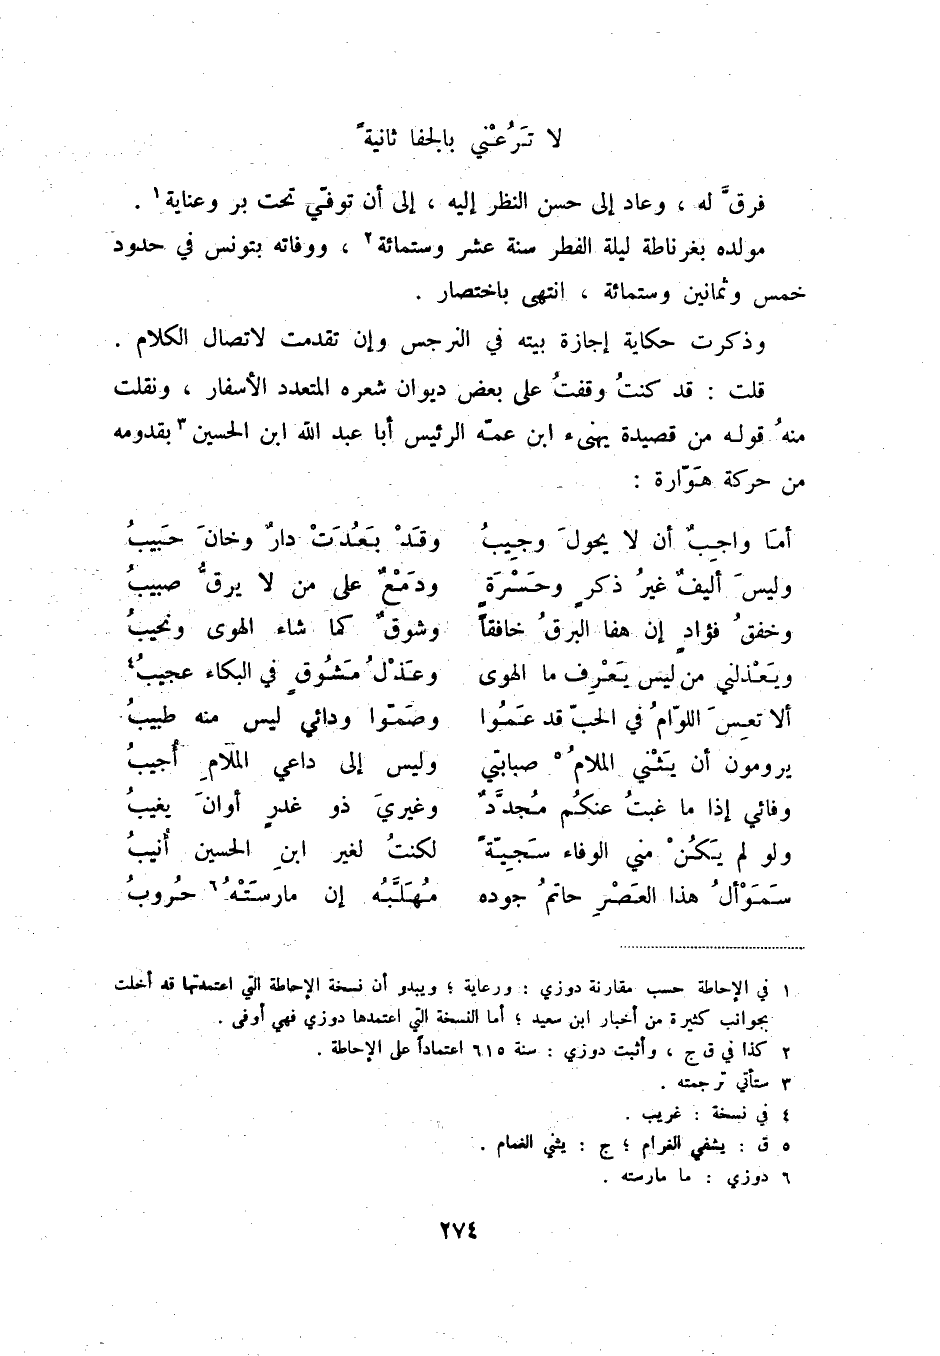 لا تَرُعْني بالجفا ثانيةً
فرقَّ له ، وعاد إلى حسن النظر إليه ، إلى أن توفّي تحت بر وعناية١ .
مولده بغرناطة ليلة الفطر سنة عشر وستمائة٢ ، ووفاته بتونس في حدود
خمس وثمانين وستمائة ، انتهى باختصار .
وذكرت حكاية إجازة بيته في النرجس وإن تقدمت لاتصال الكلام .
قلت : قد كنتُ وقفتُ على بعض ديوان شعره المتعدد الأسفار ، ونقلت
منهُ قوله من قصيدة يهنىء ابن عمّه الرئيس أبا عبد الله ابن الحسين٣ بقدومه
من حركة هَوّارة :
أمَا واجِبٌ أن لا يحولَ وجِيبُ وقَدْ بَعُدَتْ دارٌ وخانَ حَبيبُ
وليسَ أليفٌ غيرُ ذكرٍ وحَسْرَةٍ ودَمْعٌ على من لا يرقُّ صبيبُ
وخفقُ فؤادٍ إن هفا البرقُ خافقاً وشوقٌ كما شاء الهوى ونحيبُ
ويَعْذلني من ليس يَعْرِف ما الهوى وعَذْلُ مَشُوقٍ في البكاء عجيبُ٤
ألا تعِسَ اللوّامُ في الحبّ قد عَمُوا وصَمّوا ودائي ليس منه طبيبُ
يرومون أن يَثْني الملامُ٥ صبابتي وليس إلى داعي الملَامِ أُجيبُ
وفائي إذا ما غبتُ عنكُم مُجدَّدٌ وغيريَ ذو غدرٍ أوانَ يغيبُ
ولو لم يَكُنْ مني الوفاء سَجِيّةً لكنتُ لغير ابنِ الحسين أُنيبُ
سَمَوْألُ هذا العَصْرِ حاتمُ جوده مُهَلَّبُه إن مارسَتْهُ٦ حُروبُ
١ في الإحاطة حسب مقارنة دوزي : ورعاية ؛ ويبدو أن نسخة الإحاطة التي اعتمدتها قد أخلت
بجوانب كثيرة من أخبار ابن سعيد ؛ أما النسخة التي اعتمدها دوزي فهي أوفى .
٢ كذا في ق ج ، وأثبت دوزي : سنة ٦١٥ اعتماداً على الإحاطة .
٣ ستأتي ترجمته .
٤ في نسخة : غريب .
٥ ق : يشفي الغرام ؛ ج : يثني الغمام .
٦ دوزي : ما مارسته .
٢٧٤